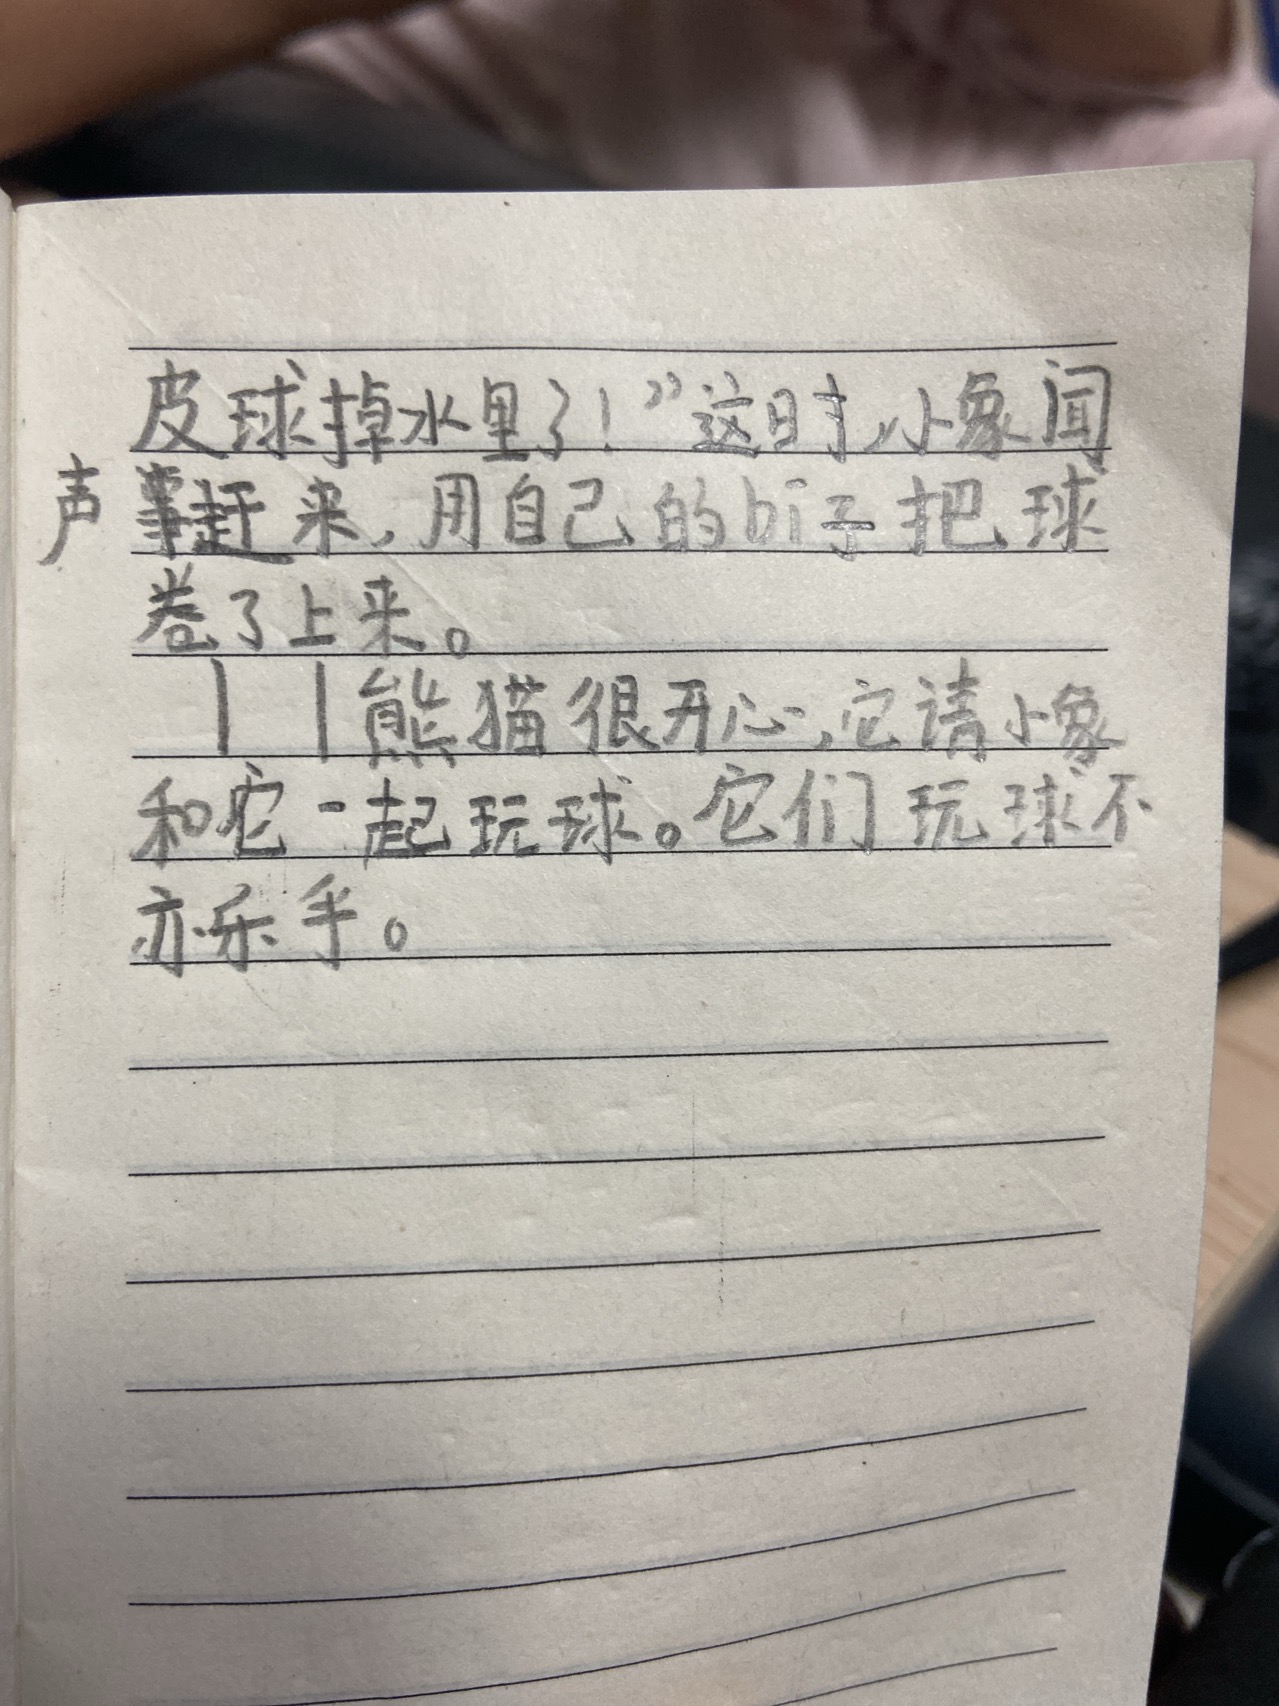 皮球掉水里了！”这时，小象闻
声赶来，用自己的bi子把球
卷了上来。
熊猫很开心，它请小象
和它一起玩球。它们玩球不
亦乐乎。